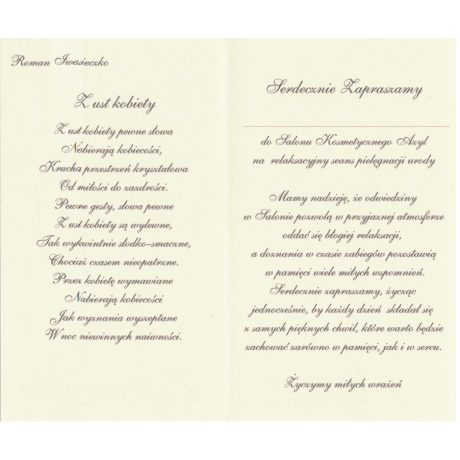 Roman Iwasieczko
Z ust kobiety
Z ust kobiety pewne słowa
Nabierają kobiecości,
Krucha przestrzeń kryształowa
Od miłości do zazdrości.
Pewne gesty, słowa pewne
Z ust kobiety są wylewne,
Tak wykwintnie słodko-smaczne,
Chociaż czasem nieopatrzne.
Przez kobietę wymawiane
Nabierają kobiecości
Jak wyznania wyszeptane
W noc niewinnych naiwności.
Serdecznie Zapraszamy
do Salonu Kosmetycznego Azyl
na relaksacyjny seans pielęgnacji urody
Mamy nadzieję, że odwiedziny
w Salonie pozwolą w przyjaznej atmosferze
oddać się błogiej relaksacji,
a doznania w czasie zabiegów pozostawią
w pamięci wiele miłych wspomnień.
Serdecznie zapraszamy, życząc
jednocześnie, by każdy dzień składał się
z samych pięknych chwil, które warto będzie
zachować zarówno w pamięci, jak i w sercu.
Życzymy miłych wrażeń